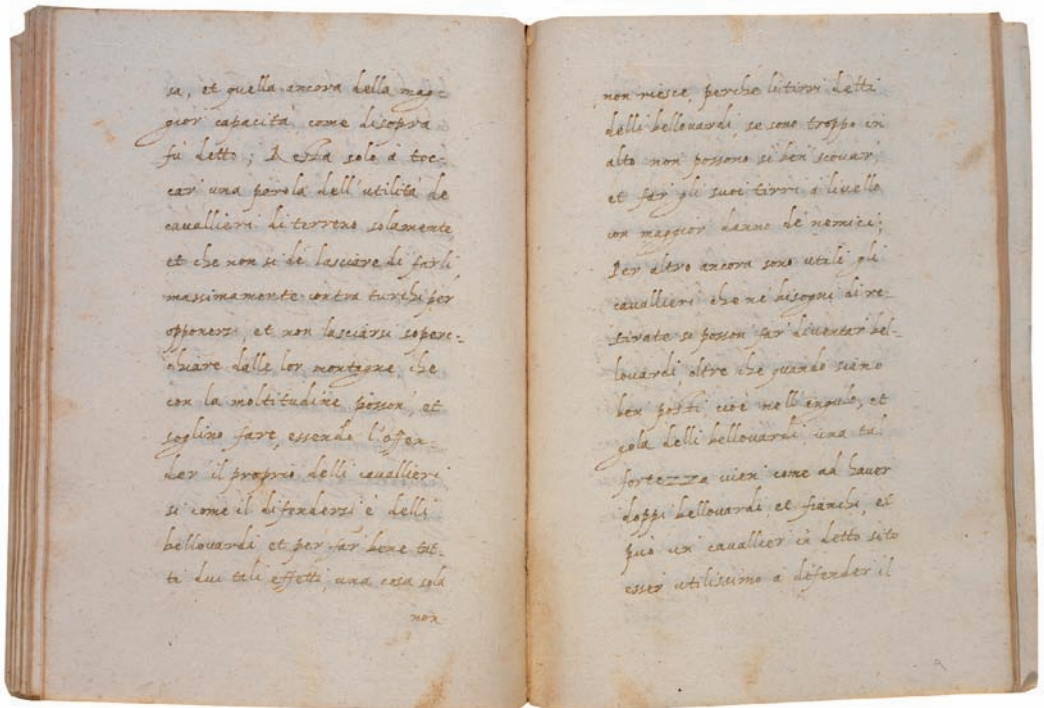 sa, et quella ancora della mag-
gior capacità come disopra
fù detto; Resta solo à toc-
car una parola dell'utilità de
cavallieri di terreno solamente,
et che non si dè lasciare di farli
massimamente contra turchi per
opponersi, et non lasciarsi soperc-
chiare dalle lor montagne, che
con la moltitudine posson', et
soglino fare, essendo l'offen-
der' il proprio delli cavallieri,
si come il difendersi è delli
bellovardi et per far bene tut-
ti dui tali effetti, una cosa sola
non
non riesce, perche li tirri detti
delli bellovardi, se sono troppo in
alto non possono si ben scovar,
et far gli suoi tirri à livello
con maggior danno de' nemici;
Per altro ancora sono utili gli
cavallieri che ne bisogni di re-
tirate si posson far diventar bel-
lovardi, oltre che quando siano
ben posti cioè nell'angulo, et
gola delli bellovardi, una tal
fortezza vien' come ad haver
doppi bellovardi, et fianchi, et
può un cavallier in detto sito
esser utilissimo a difender il